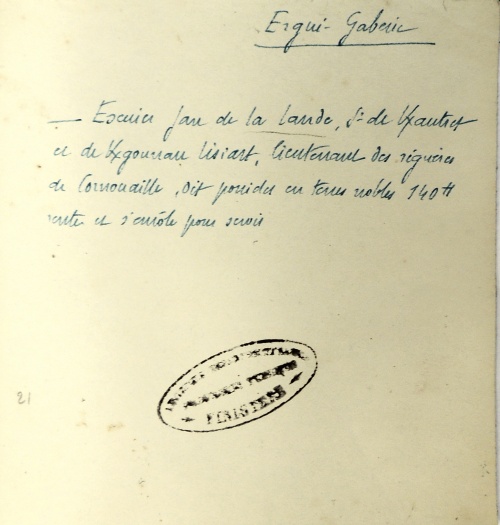 Ergué-Gaberic
— Escuier Jan de la Lande, Sr de Kxautret
et de Kxgounan Lisiart, lieutenant des régaires
de Cornouaille, dit posséder en terres nobles 140 tt
rente et s'enrôle pour servir
21
FINISTERE